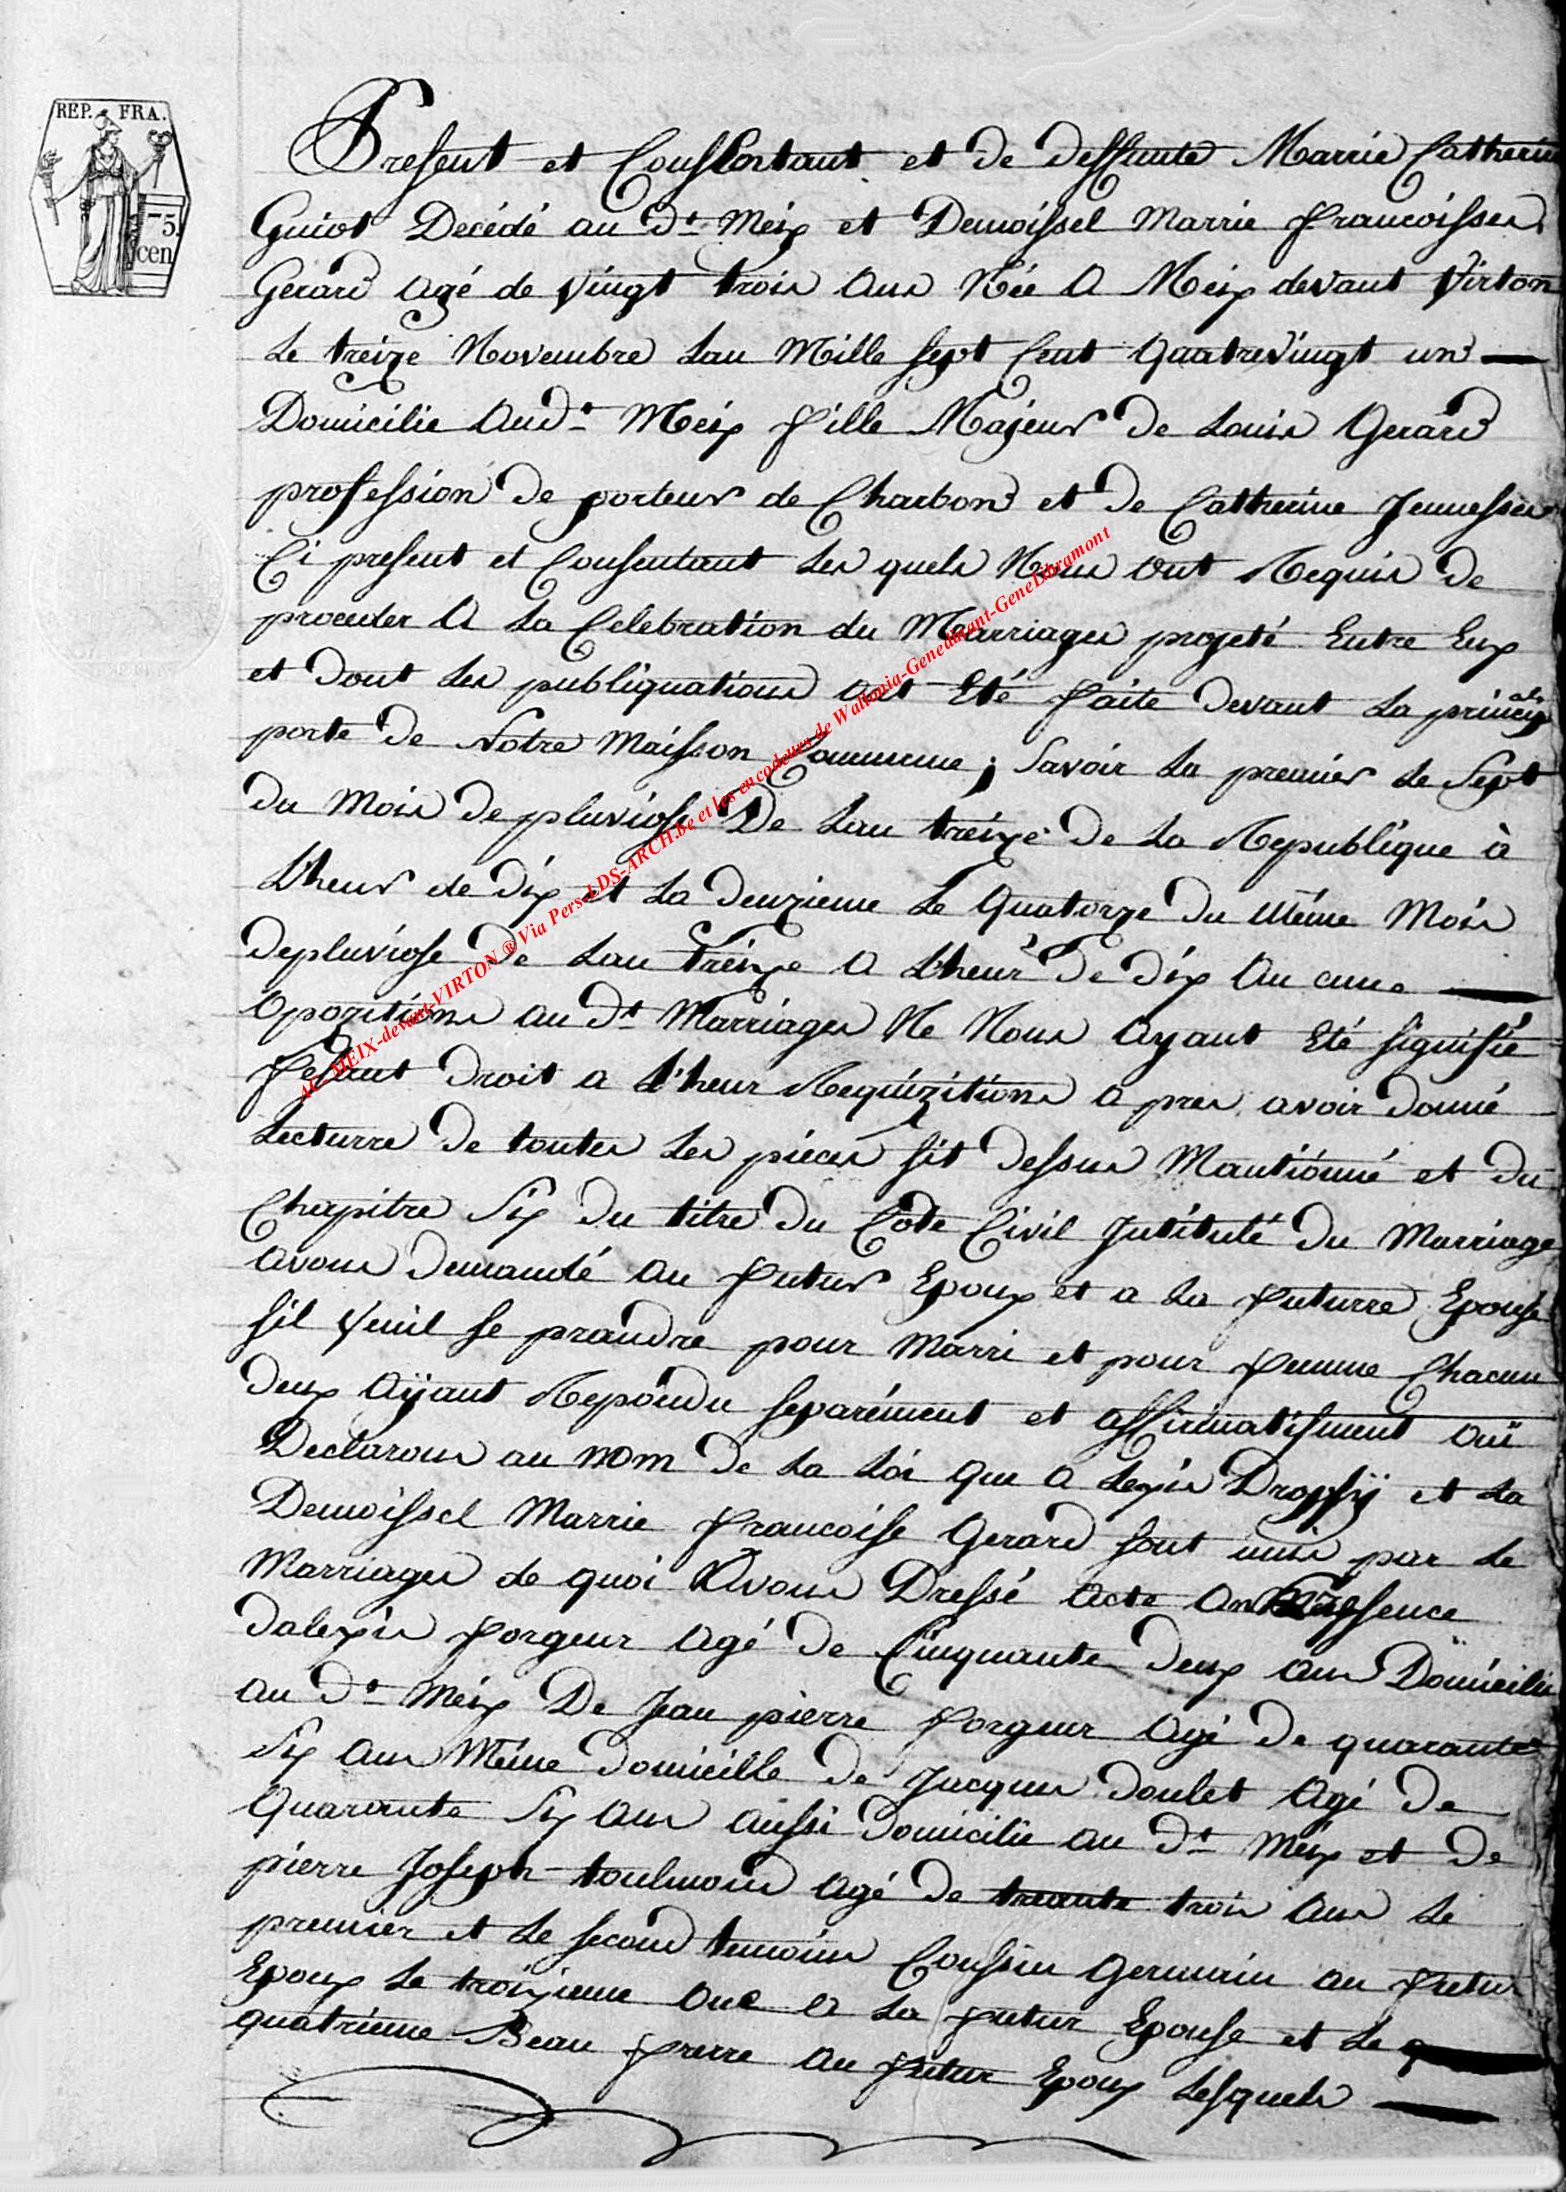 REP. FRA.
75
cen
Present et Consentant et de deffunte Marrie Catherin
Guiot Decédé au dt Meix et Demoissel Marrie francoisse
Gerard agé de vingt trois ans Née a Meix devant Virton
Le treize Novembre Lan Mille sept Cent quatrevingt un
Domicilie audt Meix fille Majeur de Louis Gerard
profession de porteur de Charbon et de Catherine Jennesse
Ci present et Consentant Les quels Nous ont Requis de
proceder a La Celebration du Marriage projeté Entre Eux
et dont Les publiquations ont Eté faite devant La principale
porte de Notre Maisson Commune ; Savoir La premier Le Sept
du Mois de pluviose De Lan treize de La Republique à
Lheur de dix et La deuzieme Le quatorze du même Mois
depluviose de Lan treize a Lheur de dix au cune
opozition au dt Marriage Ne Nous ayant Eté signifié
fesant droit a L'heur Requizition a pres avoir donné
Lecturre de toutes Les piéces sit dessus Mantionné et du
Chapitre Six du titre du Code Civil Jntitulé du Marriage
avons demandé au futur Epoux et a La futurre Epouse
sil veuil se prandre pour Marri et pour femme Chacun
deux ayant Repondu separément et affirmatifment oui
Declarons au nom de La Loi que a Lexis Dropsÿ et La
Demoissel Marrie francoise Gerard sont unis par Le
Marriage de quoi avons Dressé acte an presence
dalexis forgeur agé de Cinquante deux ans Domicilie
au dt Meix De Jean pierre forgeur agé de quarante
Six ans Même domicille de Jacques doulet agé de
quarante Six ans aussi domicilie au dt Meix et de
pierre Joseph toulmond agé de trante trois ans Le
premier et Le second temoins Coussin Germain au futur
Epoux Le troizieme onc a La futur Epouse et Le
quatrieme Beau frerre au futur Epoux Lesquels
AC-MEIX-devant-VIRTON ® Via Pers-LDS-ARCH.be et les encodeurs de Wallonia-Genedinant-GeneLibramont